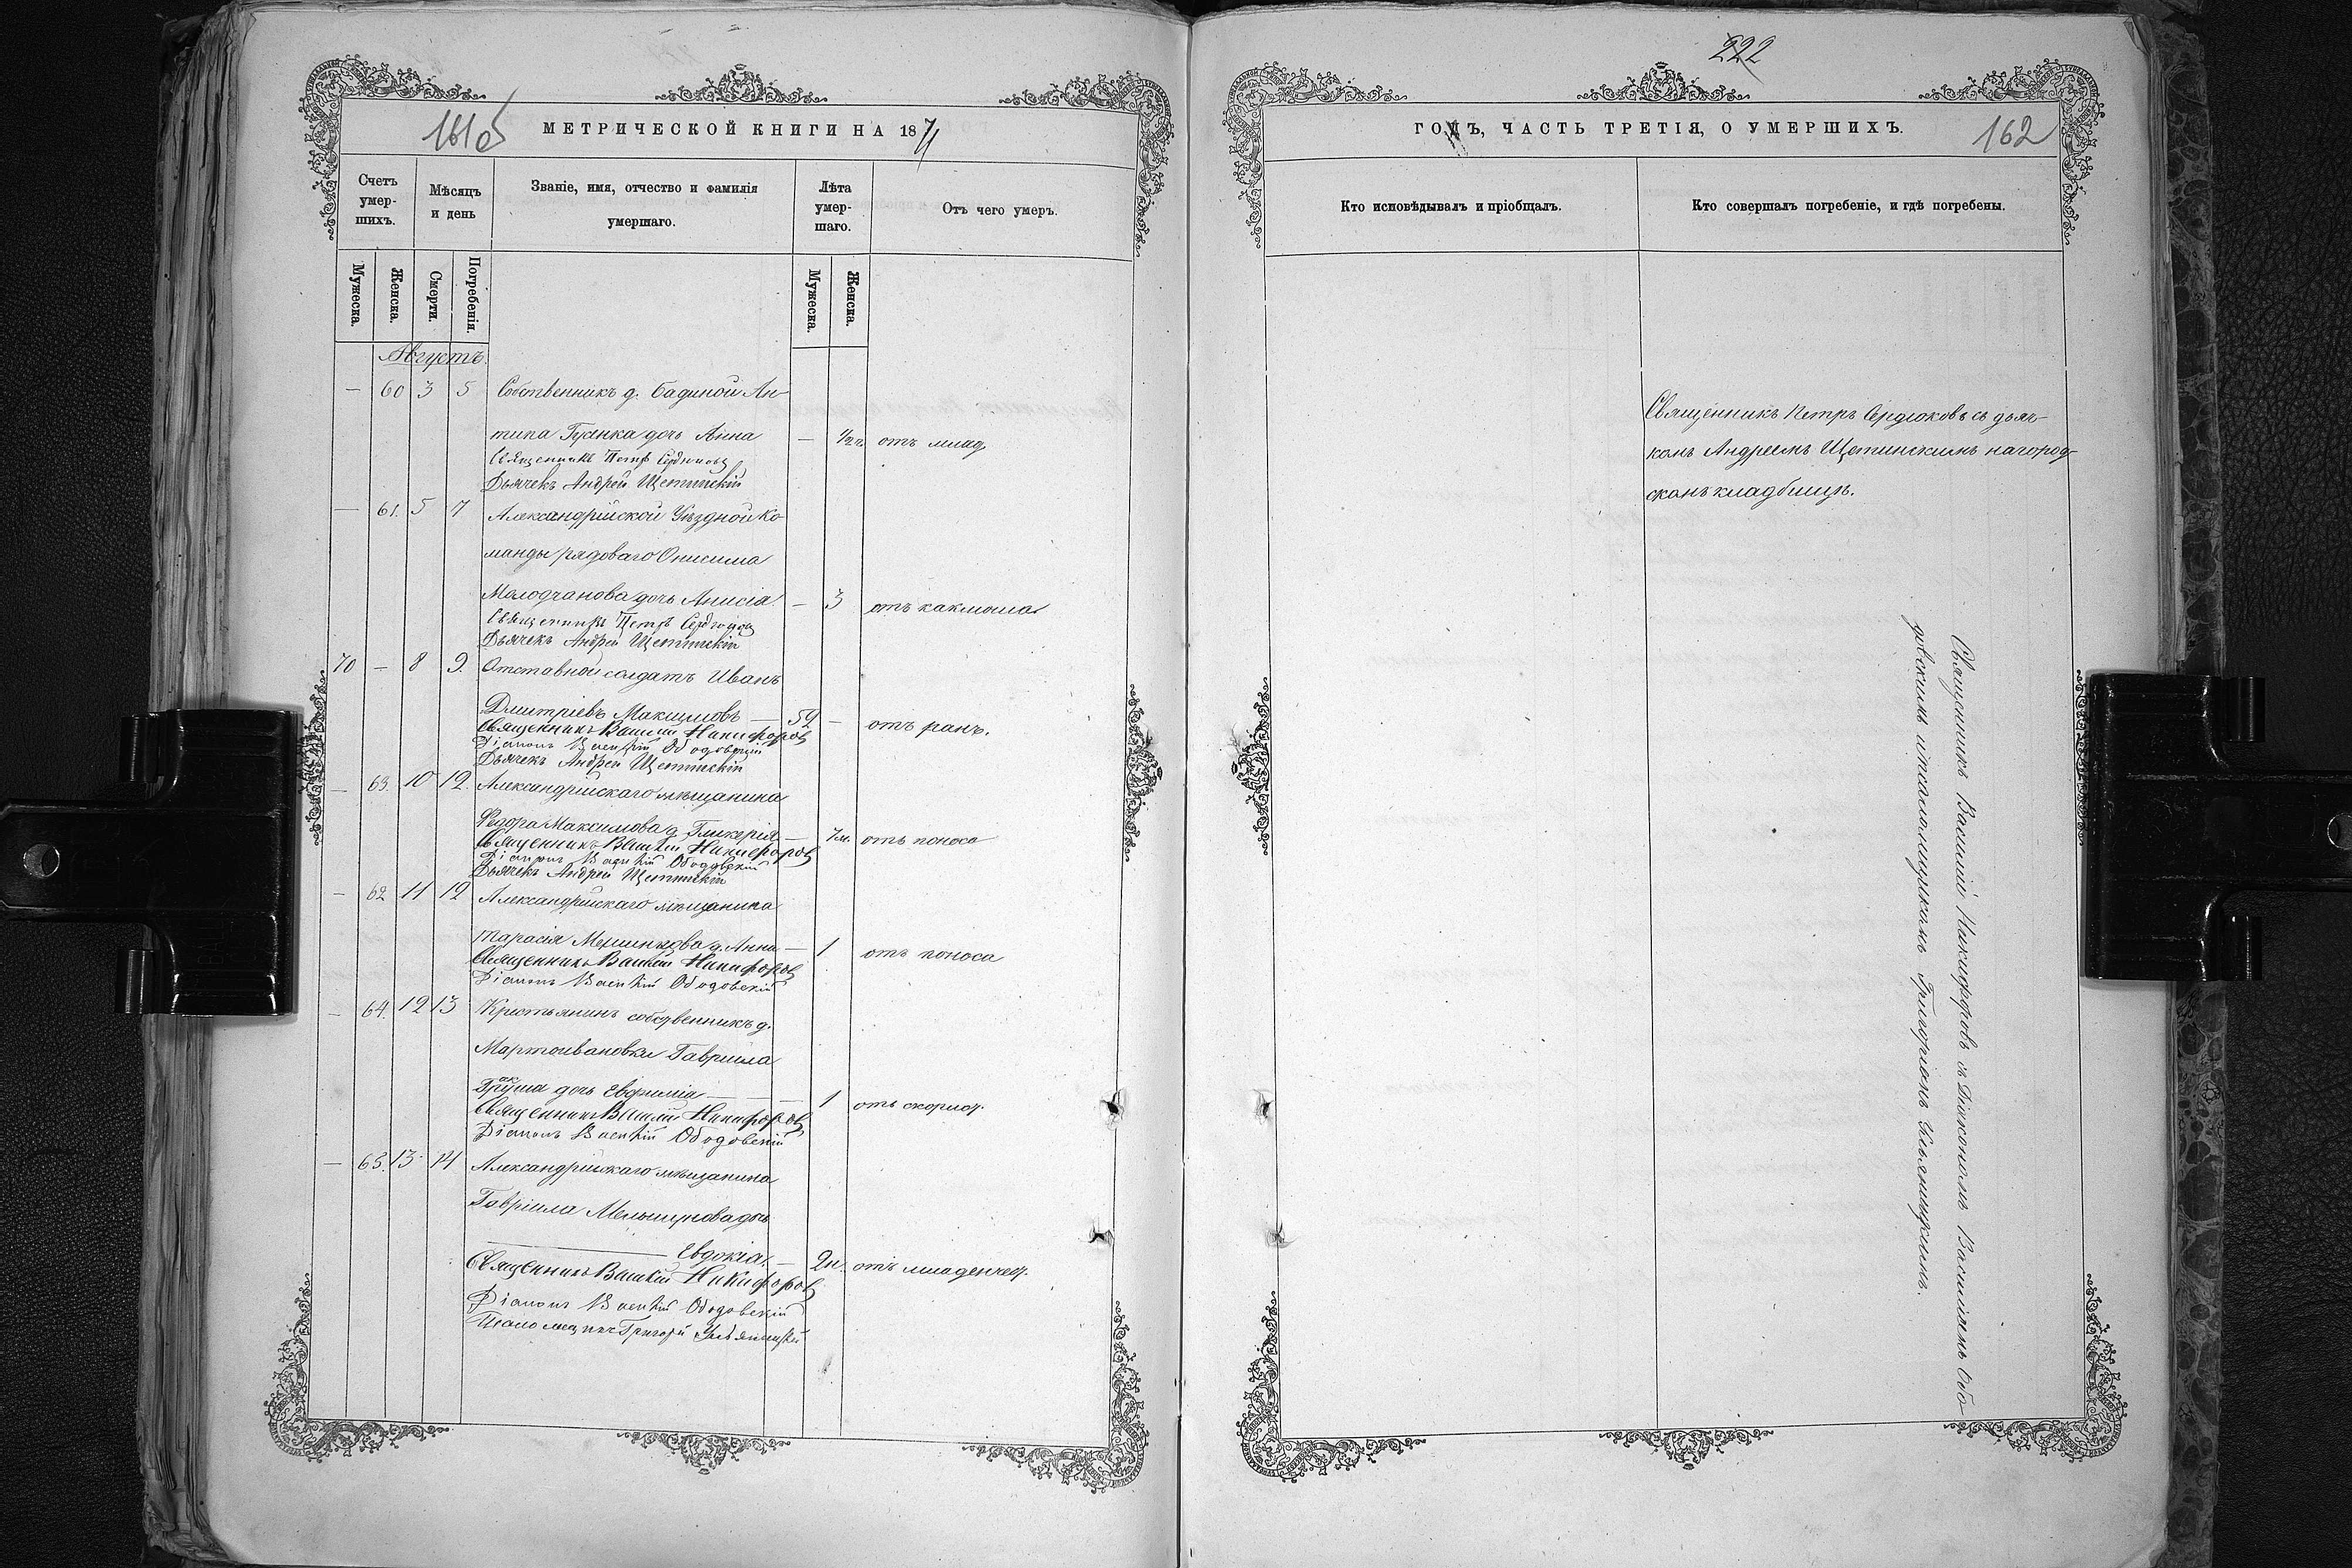 161об
МЕТРИЧЕСКОЙ КНИГИ НА 1871
Счетъ умер-шихъ.
Мѣсяцъ и день
Званіе, имя, отчество и фамилія умершаго.
Лѣта умер-шаго.
Отъ чего умеръ.
Мужеска.
Женска.
Смерти.
Погребенія.
Мужеска.
Женска.
Августъ.
— 60 3 5 Собственникъ д. Бадиной Ан-
типа Гусенка дочь Анна — 1/2 г. отъ млад.
Священникъ Петръ Сердюковъ
Дьячекъ Андрей Щетинскій
— 61. 5 7 Александрійской Уѣздной Ко
манды рядоваго Онисима
Молодчанова дочь Анисія. — 3 отъ какмоша
Священникъ Петръ Сердюковъ
Дьячекъ Андрей Щетинскій
70 — 8 9. Отставной солдатъ Иванъ
Дмитріевъ Максимовъ — 52 — отъ ранъ.
Священникъ Василій Никифоровъ
Діаконъ Василій Ободовскій
Дьячекъ Андрей Щетинскій
— 63. 10 12. Александрійскаго мѣщанина
Федора Максимова д. Гликерія — 7м. отъ поноса
Священникъ Василій Никифоровъ
Діаконъ Василій Ободовскій
Дьячекъ Андрей Щетинскій
— 62 11 12 Александрійскаго мѣщанина
Тарасія д. Анна — 1 отъ поноса
Священникъ Василій Никифоровъ
Діаконъ Василій Ободовскій
— 64. 12 13 Крестьянинъ собственникъ д.
Мартоивановки Гавриила
дочь Евфимія — 1 отъ скорлат.
Священникъ Василій Никифоровъ
Діаконъ Василій Ободовскій
— 65. 13 14 Александрійскаго мѣщанина
Гавріила дочь
Евдокія. — 2н. отъ младенчес.
Священникъ Василій Никифоровъ
Діаконъ Василій Ободовскій
Псаломщикъ Григорій Ульяницкій
222
ГОДЪ, ЧАСТЬ ТРЕТІЯ, О УМЕРШИХЪ.
162
Кто исповѣдывалъ и пріобщалъ.
Кто совершалъ погребеніе, и гдѣ погребены.
Священникъ Петръ Сердюковъ съ дьяч-
комъ Андреемъ Щетинскимъ на город-
скомъ кладбищѣ.
Священникъ Василій Никифоровъ съ Діакономъ Василіемъ Обо-
довскимъ и псаломщикомъ Григоріемъ Ульяницкимъ.